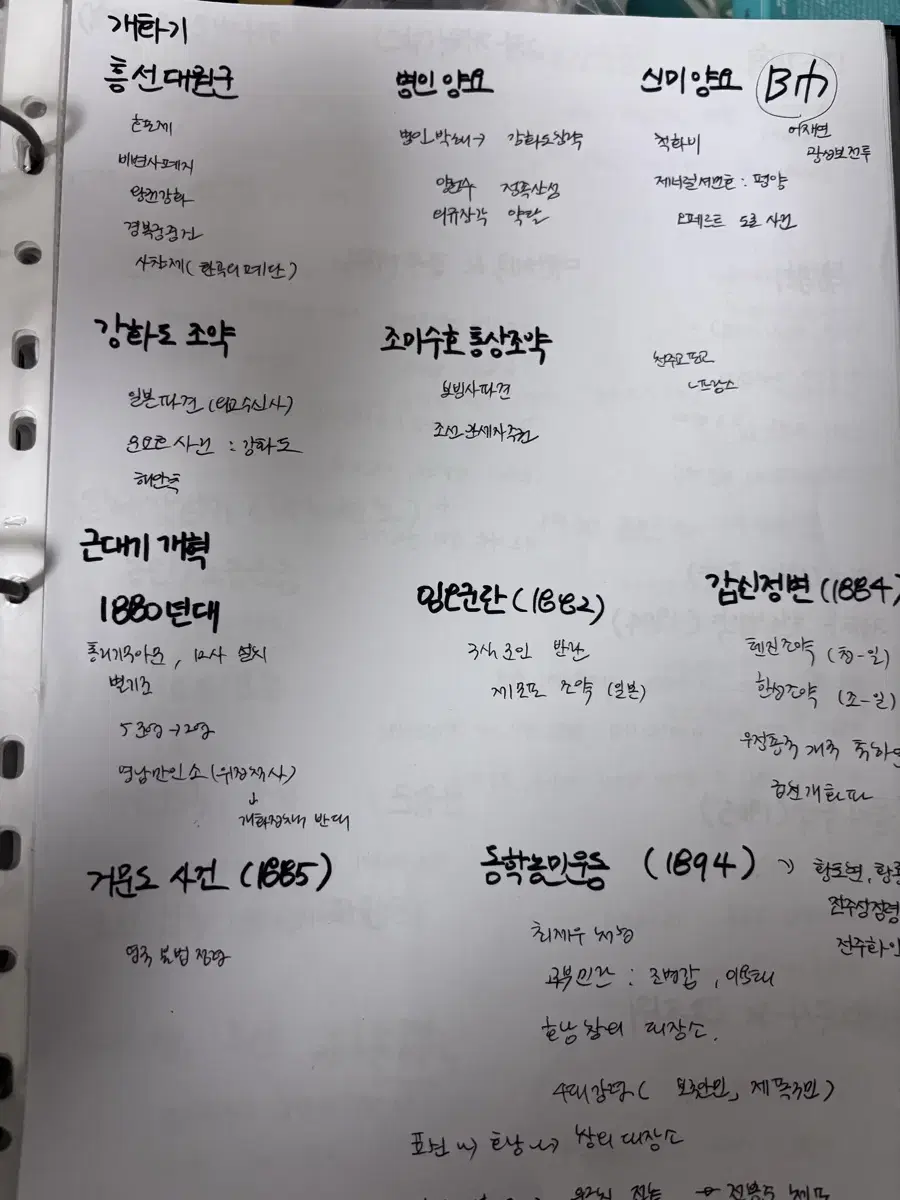 개화기
흥선대원군
호포제
비변사 폐지
왕권강화
경복궁 중건
사창제 (환곡의 폐단)
병인양요
병인박해 → 강화도 침략
양헌수 정족산성
외규장각 약탈
신미양요
어재연
광성보 전투
척화비
제너럴셔먼호 : 평양
오페르트 도굴 사건
강화도 조약
일본 파견 (외교수신사)
운요호 사건 : 강화도
해안측
조미수호통상조약
보빙사 파견
조선 관세자주권
천주교 포교
프랑스
근대기 개혁
1880년대
통리기무아문, 12사 설치
별기군
5군영 → 2영
영남만인소 (위정척사)
↓
개화정책 반대
임오군란 (1882)
구식군인 반란
제물포 조약 (일본)
갑신정변 (1884)
톈진조약 (청-일)
한성조약 (조-일)
우정총국 개국 축하연
급진개화파
거문도 사건 (1885)
영국 불법 점령
동학농민운동 (1894)
황토현, 황룡
전주성 점령
전주화약
최제우
고부민란 : 조병갑, 이용태
호남 창의 대장소.
4대강령 (보국안민, 제폭구민)
창의 대장소